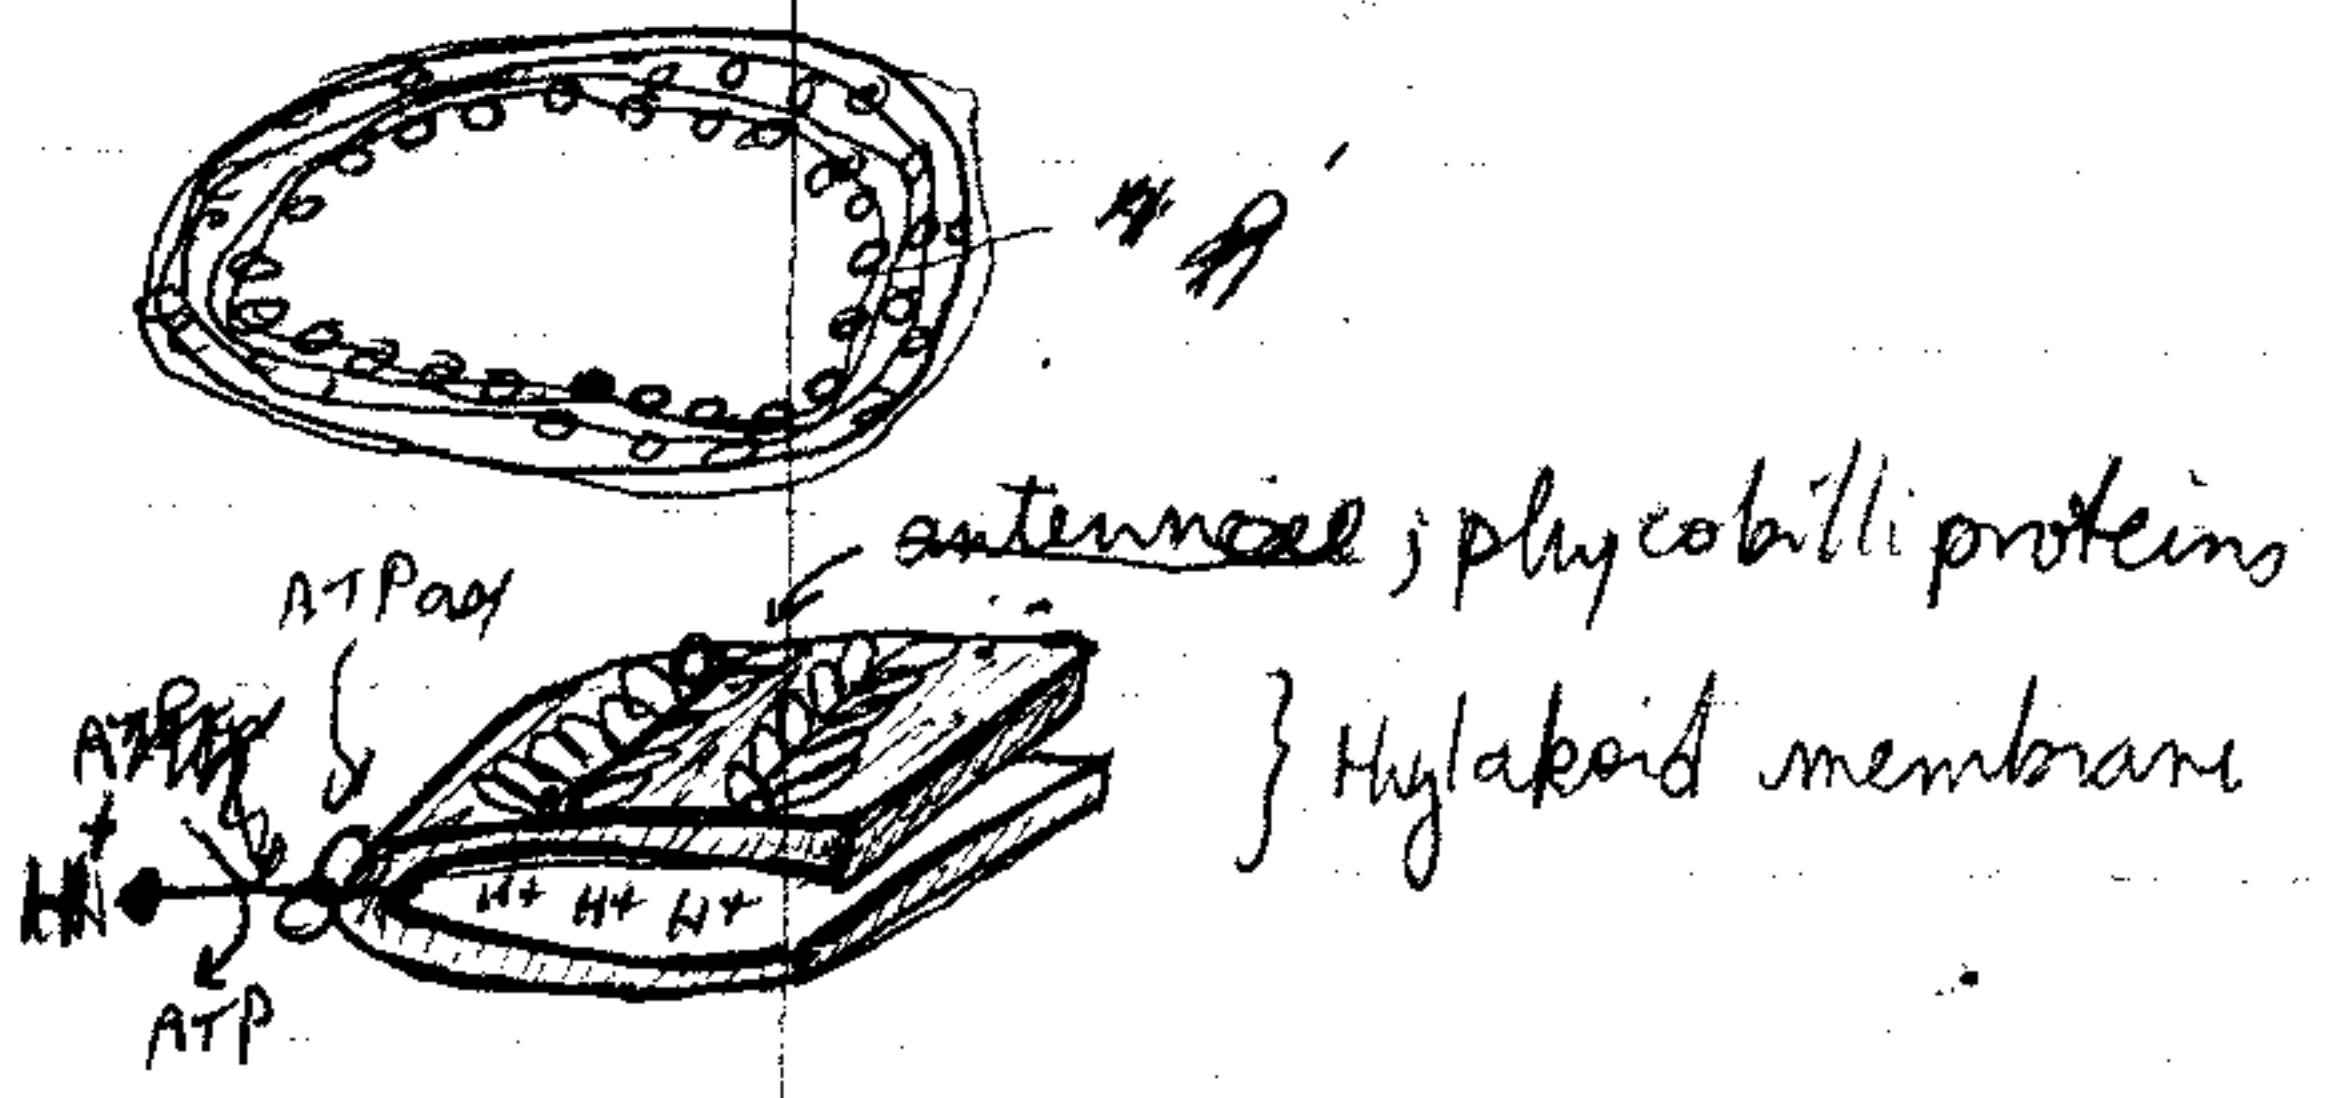 antennae ; phycobilliproteins
ATPase
thylakoid membrane
H+
H+ H+ H+
ATP